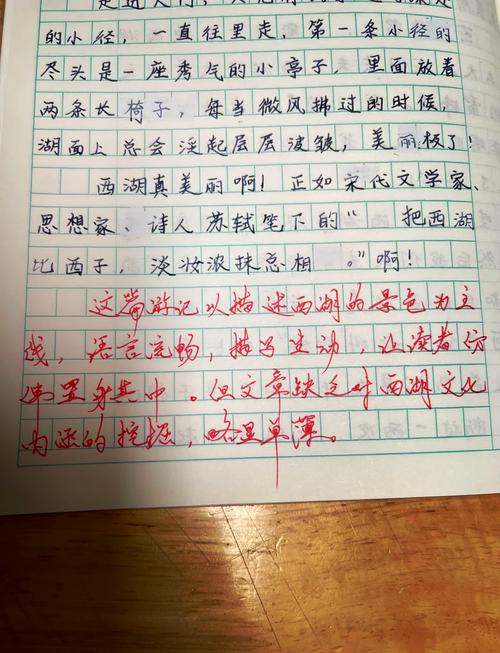 的小径，一直往里走，第一条小径的
尽头是一座秀气的小亭子，里面放着
两条长椅子，每当微风拂过的时候，
湖面上总会泛起层层波皱，美丽极了！
西湖真美丽啊！正如宋代文学家、
思想家、诗人苏轼笔下的“把西湖
比西子，淡妆浓抹总相 。”啊！
这篇游记以描述西湖的景色为主
线，语言流畅，描写生动，让读者仿
佛置身其中。但文章缺乏对西湖文化
内涵的挖掘，略显单薄。